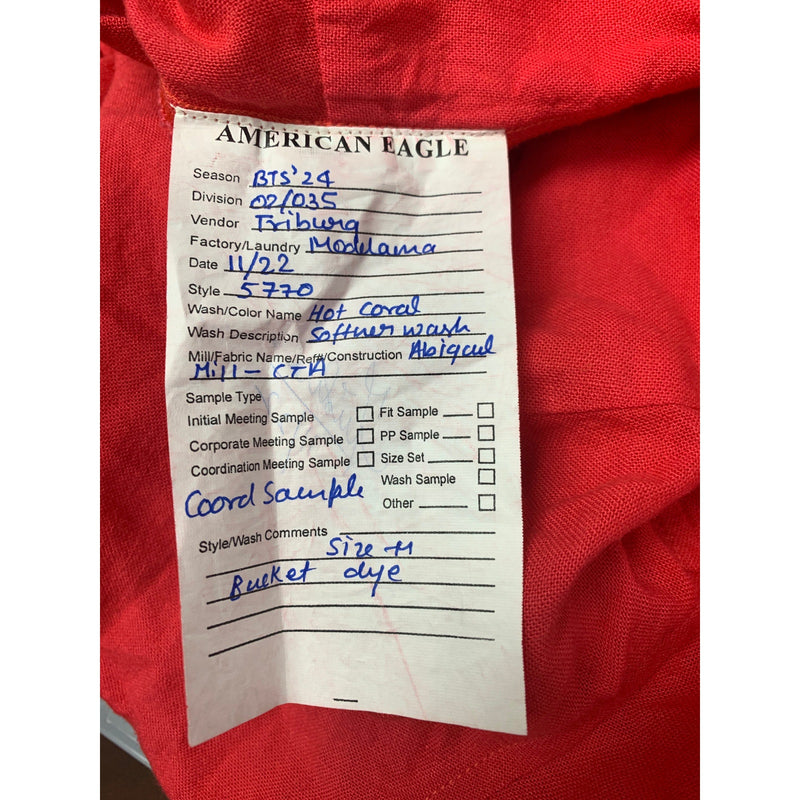 AMERICAN EAGLE
Season BTS'24
Division 02/035
Vendor Triburg
Factory/Laundry Modelama
Date 11/22
Style 5770
Wash/Color Name Hot Coral
Wash Description Softner wash
Mill/Fabric Name/Ref#/Construction Abigail
Mill - CTA
Sample Type
Initial Meeting Sample Fit Sample
Corporate Meeting Sample PP Sample
Coordination Meeting Sample Size Set
Wash Sample
Coord Sample Other
Style/Wash Comments
Size - M
Bucket dye